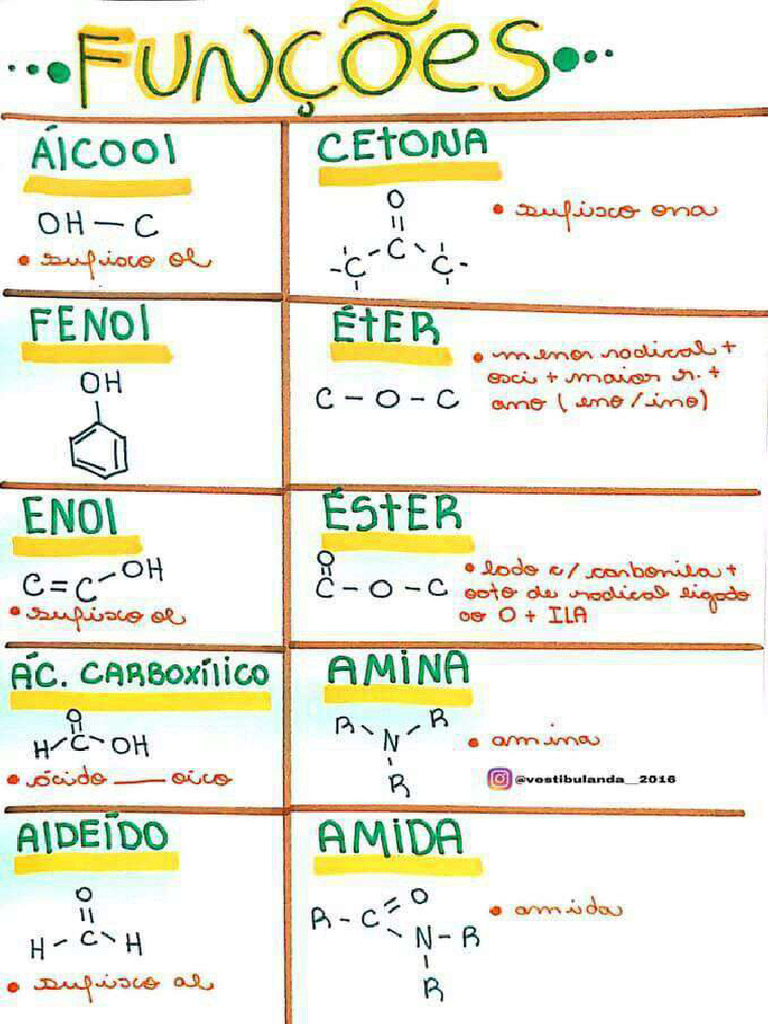 FUNÇÕES
ÁlCOOl
OH — C
• sufixo ol
CEtONA
O
C C C
• sufixo ona
FENOl
OH
ÉtER
C - O - C
• menor radical +
oxi + maior r. +
ano (eno/ino)
ENOl
C = C - OH
• sufixo ol
ÉStER
O
C - O - C
• lado c/ carbonila +
oato de radical ligado
ao O + ILA
ÁC. CARBOXÍlICO
O
H - C - OH
• ácido ___ oico
AMINA
R - N - R
R
• amina
@vestibulanda__2016
AlDEÍDO
O
H - C - H
• sufixo al
AMIDA
R - C = O
N - R
R
• amida